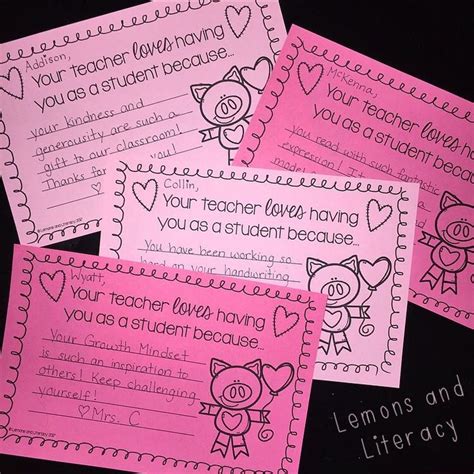 Addison,
Your teacher loves having
you as a student because...
Your kindness and
generousity are such a
gift to our classroom!
Thanks for you!
McKenna,
Your teacher loves having
you as a student because...
You read with such fantastic
expression! It
model
Collin,
Your teacher loves having
you as a student because...
You have been working so
hard on your handwriting
Wyatt,
Your teacher loves having
you as a student because...
Your Growth Mindset
is such an inspiration to
others! Keep challenging
yourself!
♡Mrs. C
©Lemons and Literacy 2017
Lemons and
Literacy